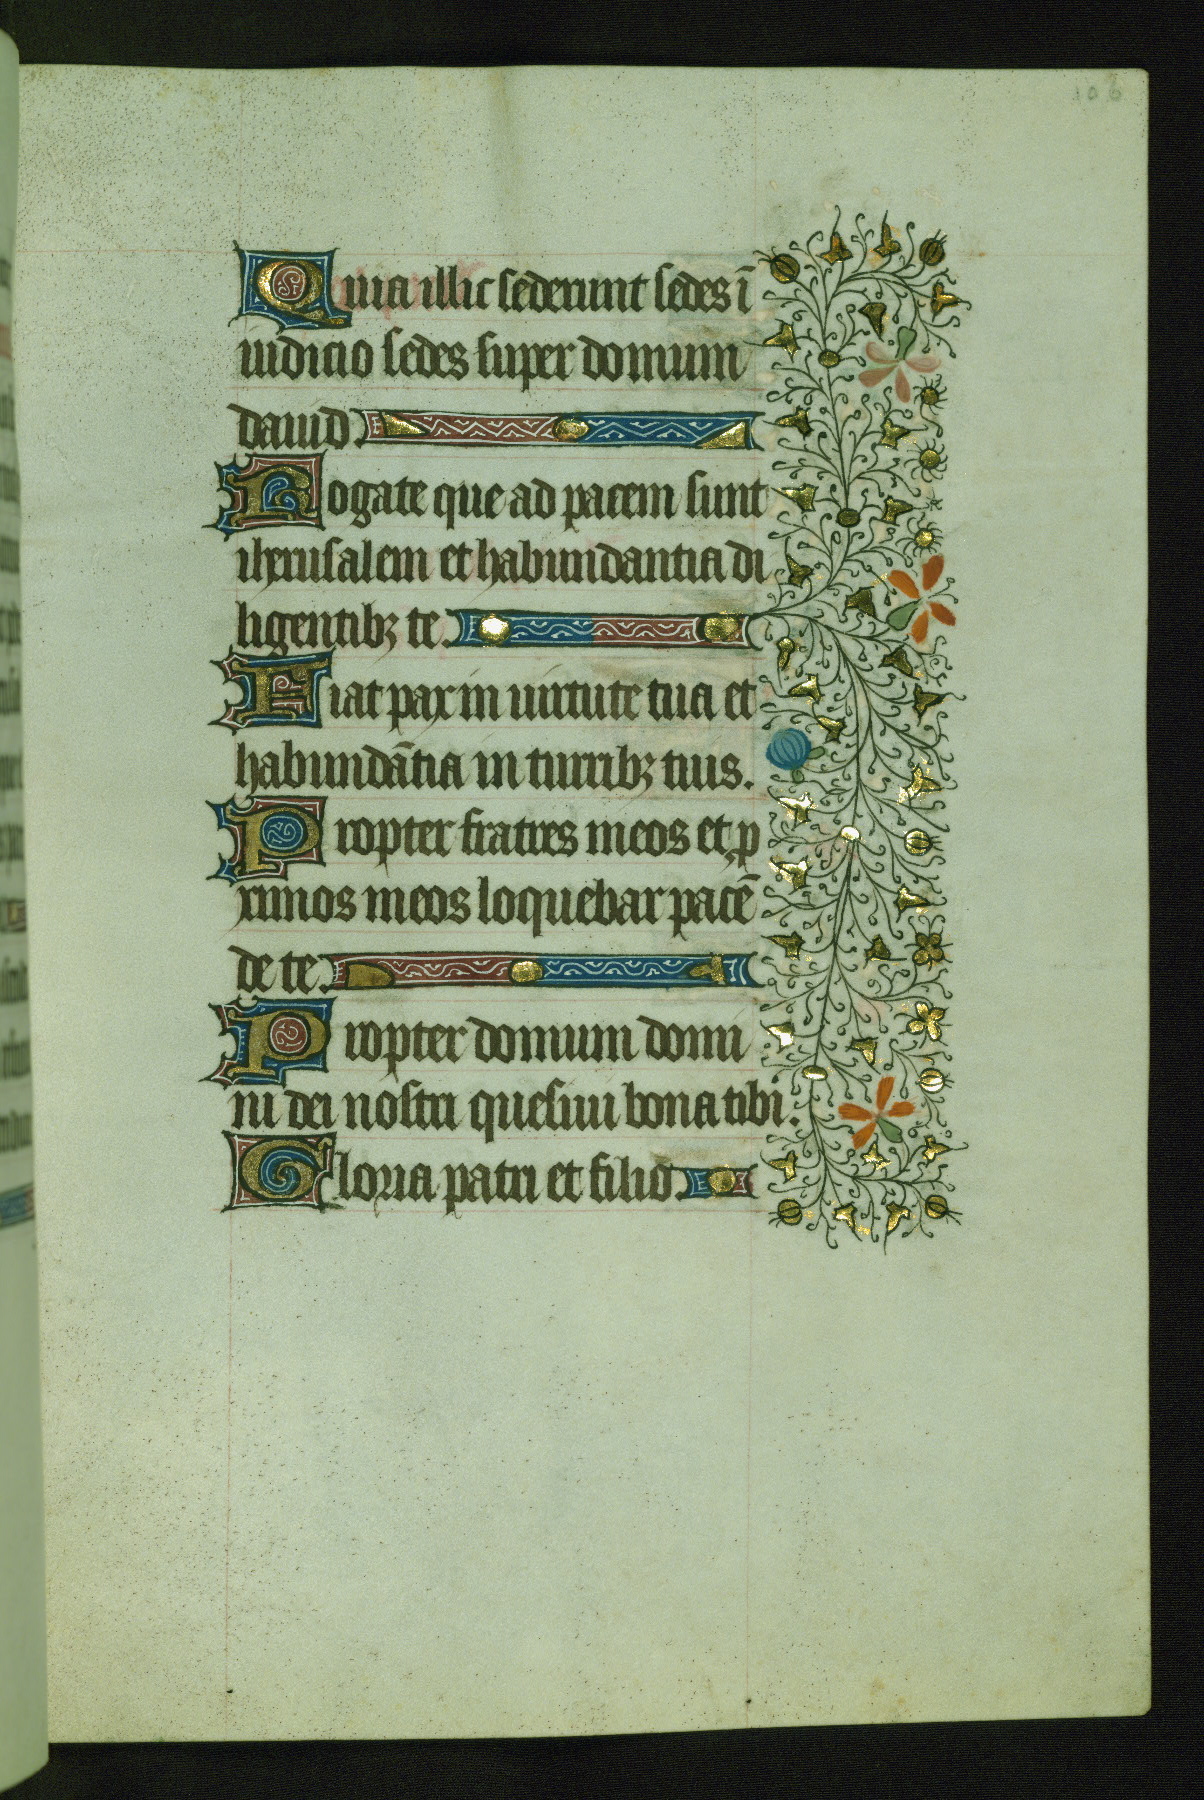 106
Quia illic sederunt sedes ī
iudicio sedes super domum
dauid.
Rogate que ad pacem sunt
iherusalem et habundantia di
ligentibꝫ te.
Fiat pax in uirtute tua et
habundātia in turribꝫ tuis.
Propter fratres meos et ꝓ
ximos meos loquebar pacē
de te.
Propter domum domi
ni dei nostri quesiui bona tibi.
Gloria patri et filio.